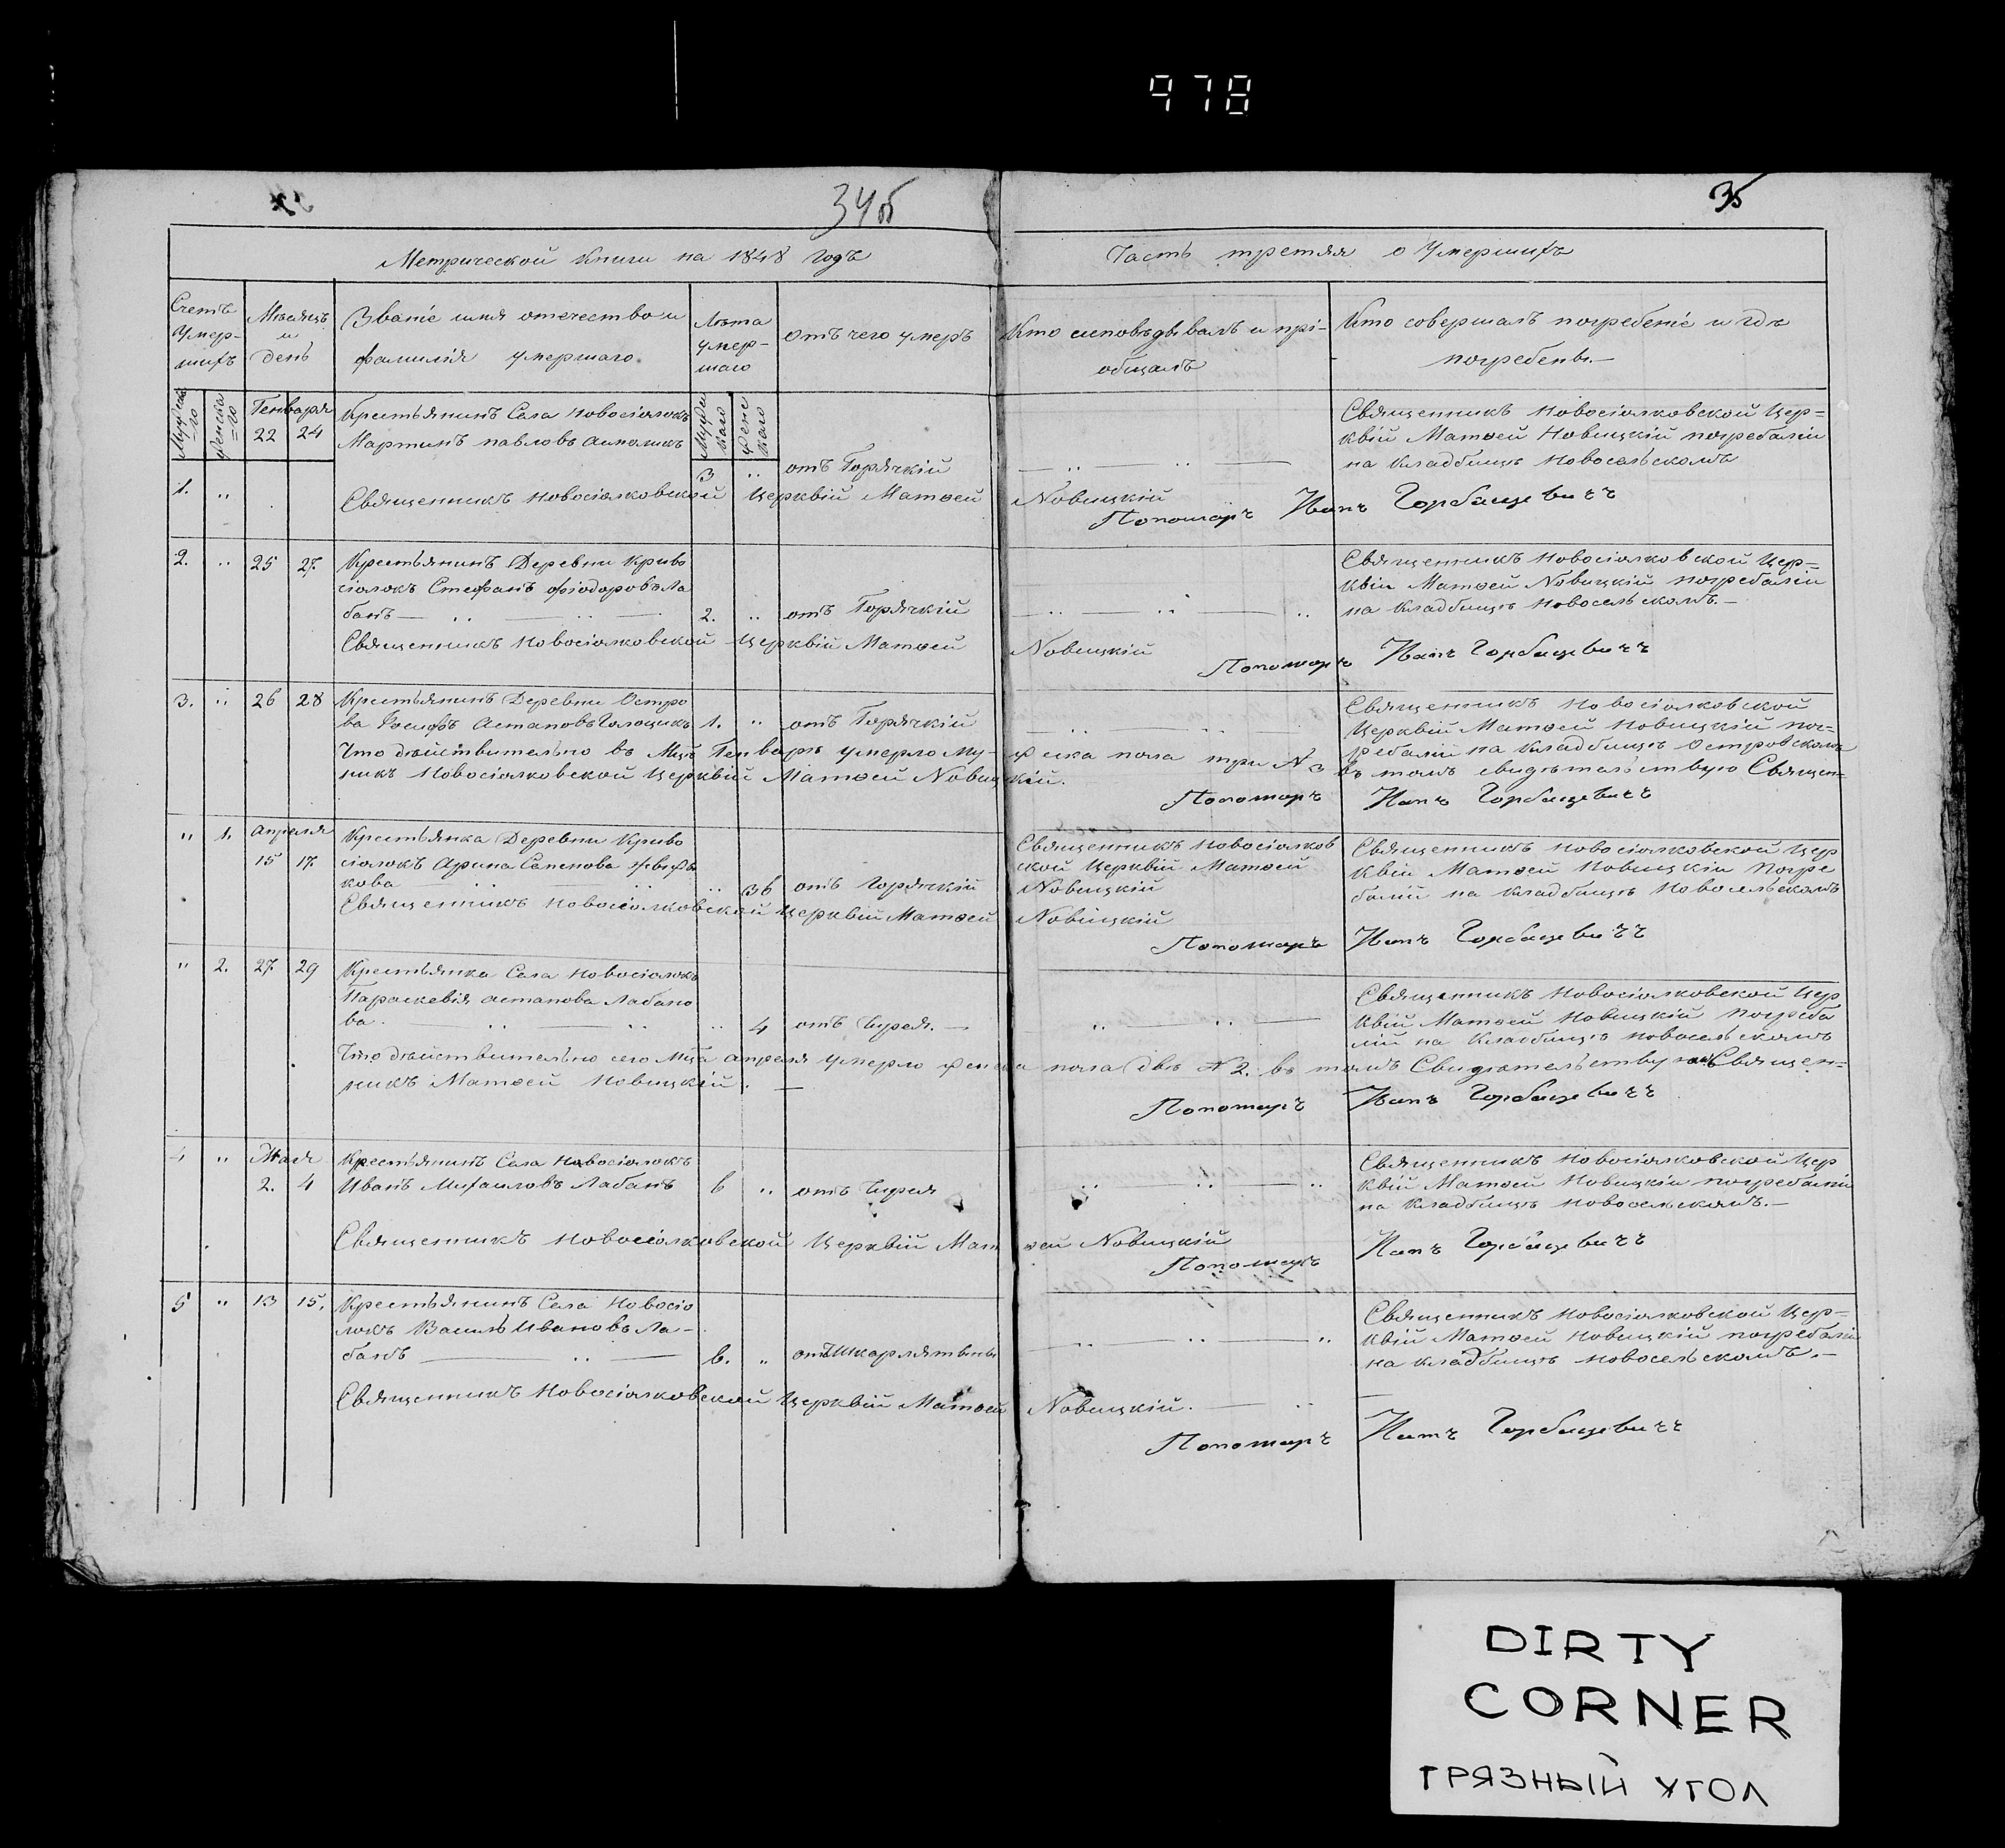 978
34б
35
Метрической Книги на 1848 Годъ
Часть третяя о Умершихъ
Счетъ Умер-шихъ
Мѣсяцъ и день
Званіе имя отечество и фамилія умершаго
Лѣта умер-шаго
отъ чего умеръ
Кто исповѣдывалъ и прі-общалъ
Кто совершалъ погребеніе и гдѣ погребены.—
Генваря
22 24
Крестьянинъ Села Новосіолокъ
Мартинъ павловъ
3 „ отъ Горячкій
Священникъ Новосіолковской Цер=
квій Матѳей Новицкій погребалій
на кладбищѣ Новосельскомъ
1. „
Священникъ Новосіолковской Церквій Матѳей Новицкій
Пономаръ Иванъ Горбацевичъ
2. „ 25 27.
Крестьянинъ Деревни Криво
сіолокъ Стефанъ Фіодоровъ Ла
банъ — 2. „ отъ Горячкій
Священникъ Новосіолковской Цер=
квіи Матѳей Новицкій погребалій
на кладбищѣ Новосельскомъ.—
Священникъ Новосіолковской Церквій Матѳей Новицкій
Пономаръ Иванъ Горбацевичъ
3. „ 26 28
Крестьянинъ Деревни Остро
ва Іосифъ Астаповъ 1. „ отъ Горячкій
Священникъ Новосіолковской
Церквій Матѳей Новицкій пог=
ребалій на кладбищѣ Островскомъ
Что дѣйствительно въ Мцѣ Генварѣ умерло Му-жеска пола три № 3 въ томъ свидѣтельствую Священ=
никъ Новосіолковской Церквій Матѳей Новицкій.
Пономаръ Иванъ Горбацевичъ
„ 1. Апреля
15 17.
Крестьянка Деревни Криво
сіолокъ Арина Семенова
кова „ 36 отъ Горячкій
Священникъ Новосіолков
ской Церквій Матѳей
Новицкій
Священникъ Новосіолковской Цер
квій Матѳей Новицкіи Погре
балій на кладбищѣ Новосельскомъ
Священникъ Новосіолковской Церквій Матѳей Новицкій
Пономаръ Иванъ Горбацевичъ
„ 2. 27. 29
Крестьянка Села Новосіолокъ
Параскевія Астапова Лабано
ва. „ 4 отъ Чирея. —
Священникъ Новосіолковской Цер
квій Матѳей Новицкій Погреба
лій на кладбищѣ Новосельскомъ
Что дѣйствительно сего Мца Апреля умерло женска пола двѣ № 2. въ томъ Свидѣтельствую Священ=
никъ Матѳей Новицкій. —
Пономаръ Иванъ Горбацевичъ
4 „ Мая
2. 4
Крестьянинъ Села Новосіолокъ
Иванъ Михаиловъ Лабанъ 6 „ отъ Чирея
Священникъ Новосіолковской Цер
квій Матѳей Новицкіи погребалій
на кладбищѣ Новосельскомъ.—
Священникъ Новосіолковской Церквій Матѳей Новицкій
Пономаръ Иванъ Горбацевичъ
5 „ 13 15.
Крестьянинъ Села Новосіо
локъ Василь Ивановъ Ла-
банъ — 6. „ отъ Шкарлятыны
Священникъ Новосіолковской Цер=
квій Матѳей Новицкій погребалій
на кладбищѣ Новосельскомъ.—
Священникъ Новосіолковской Церквій Матѳей Новицкій. —
Пономаръ Иванъ Горбацевичъ
DIRTY
CORNER
ГРЯЗНЫЙ УГОЛ